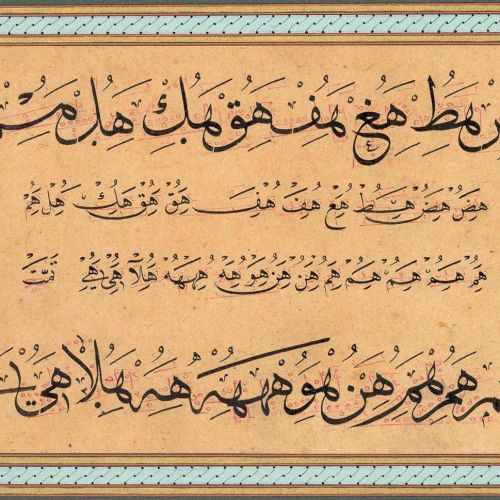 هط هغ هف هق هك هل
هض هض هط هغ هف هف هق هق هك هل هم
هم هم هم هم هم هن هن هو هه ههه هلا هى هى تمت
هم هم هن هو ههه هه هلا هى